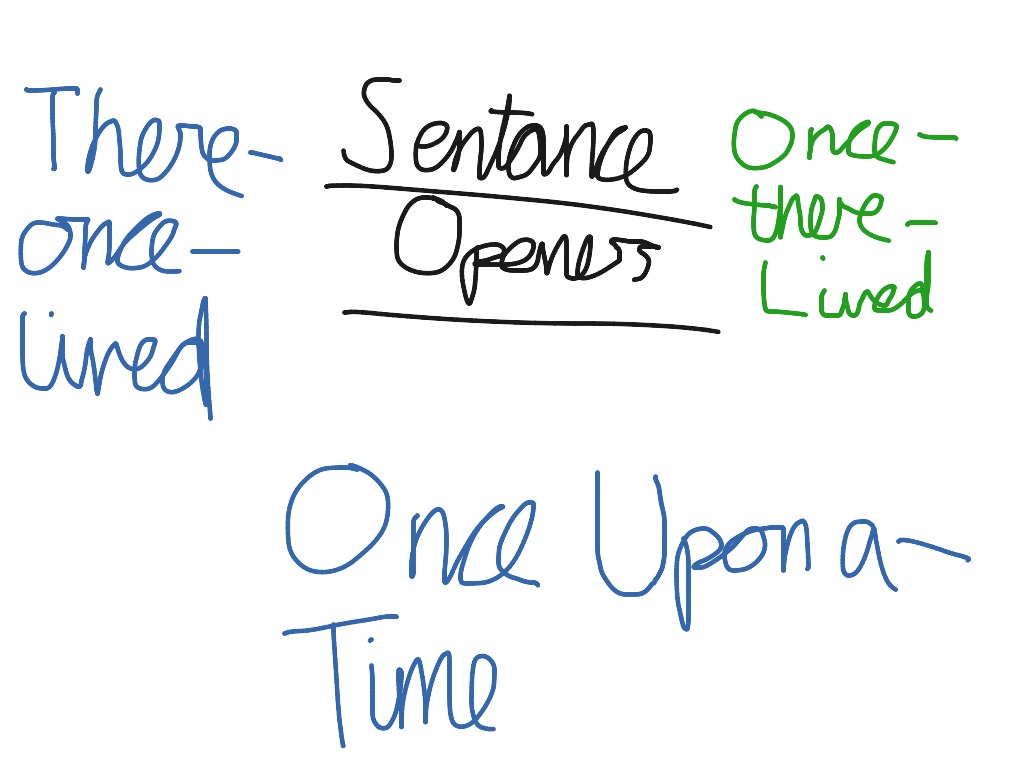 Sentance
Openers
There-
once-
lived
Once-
there-
Lived
Once Upon a-
Time